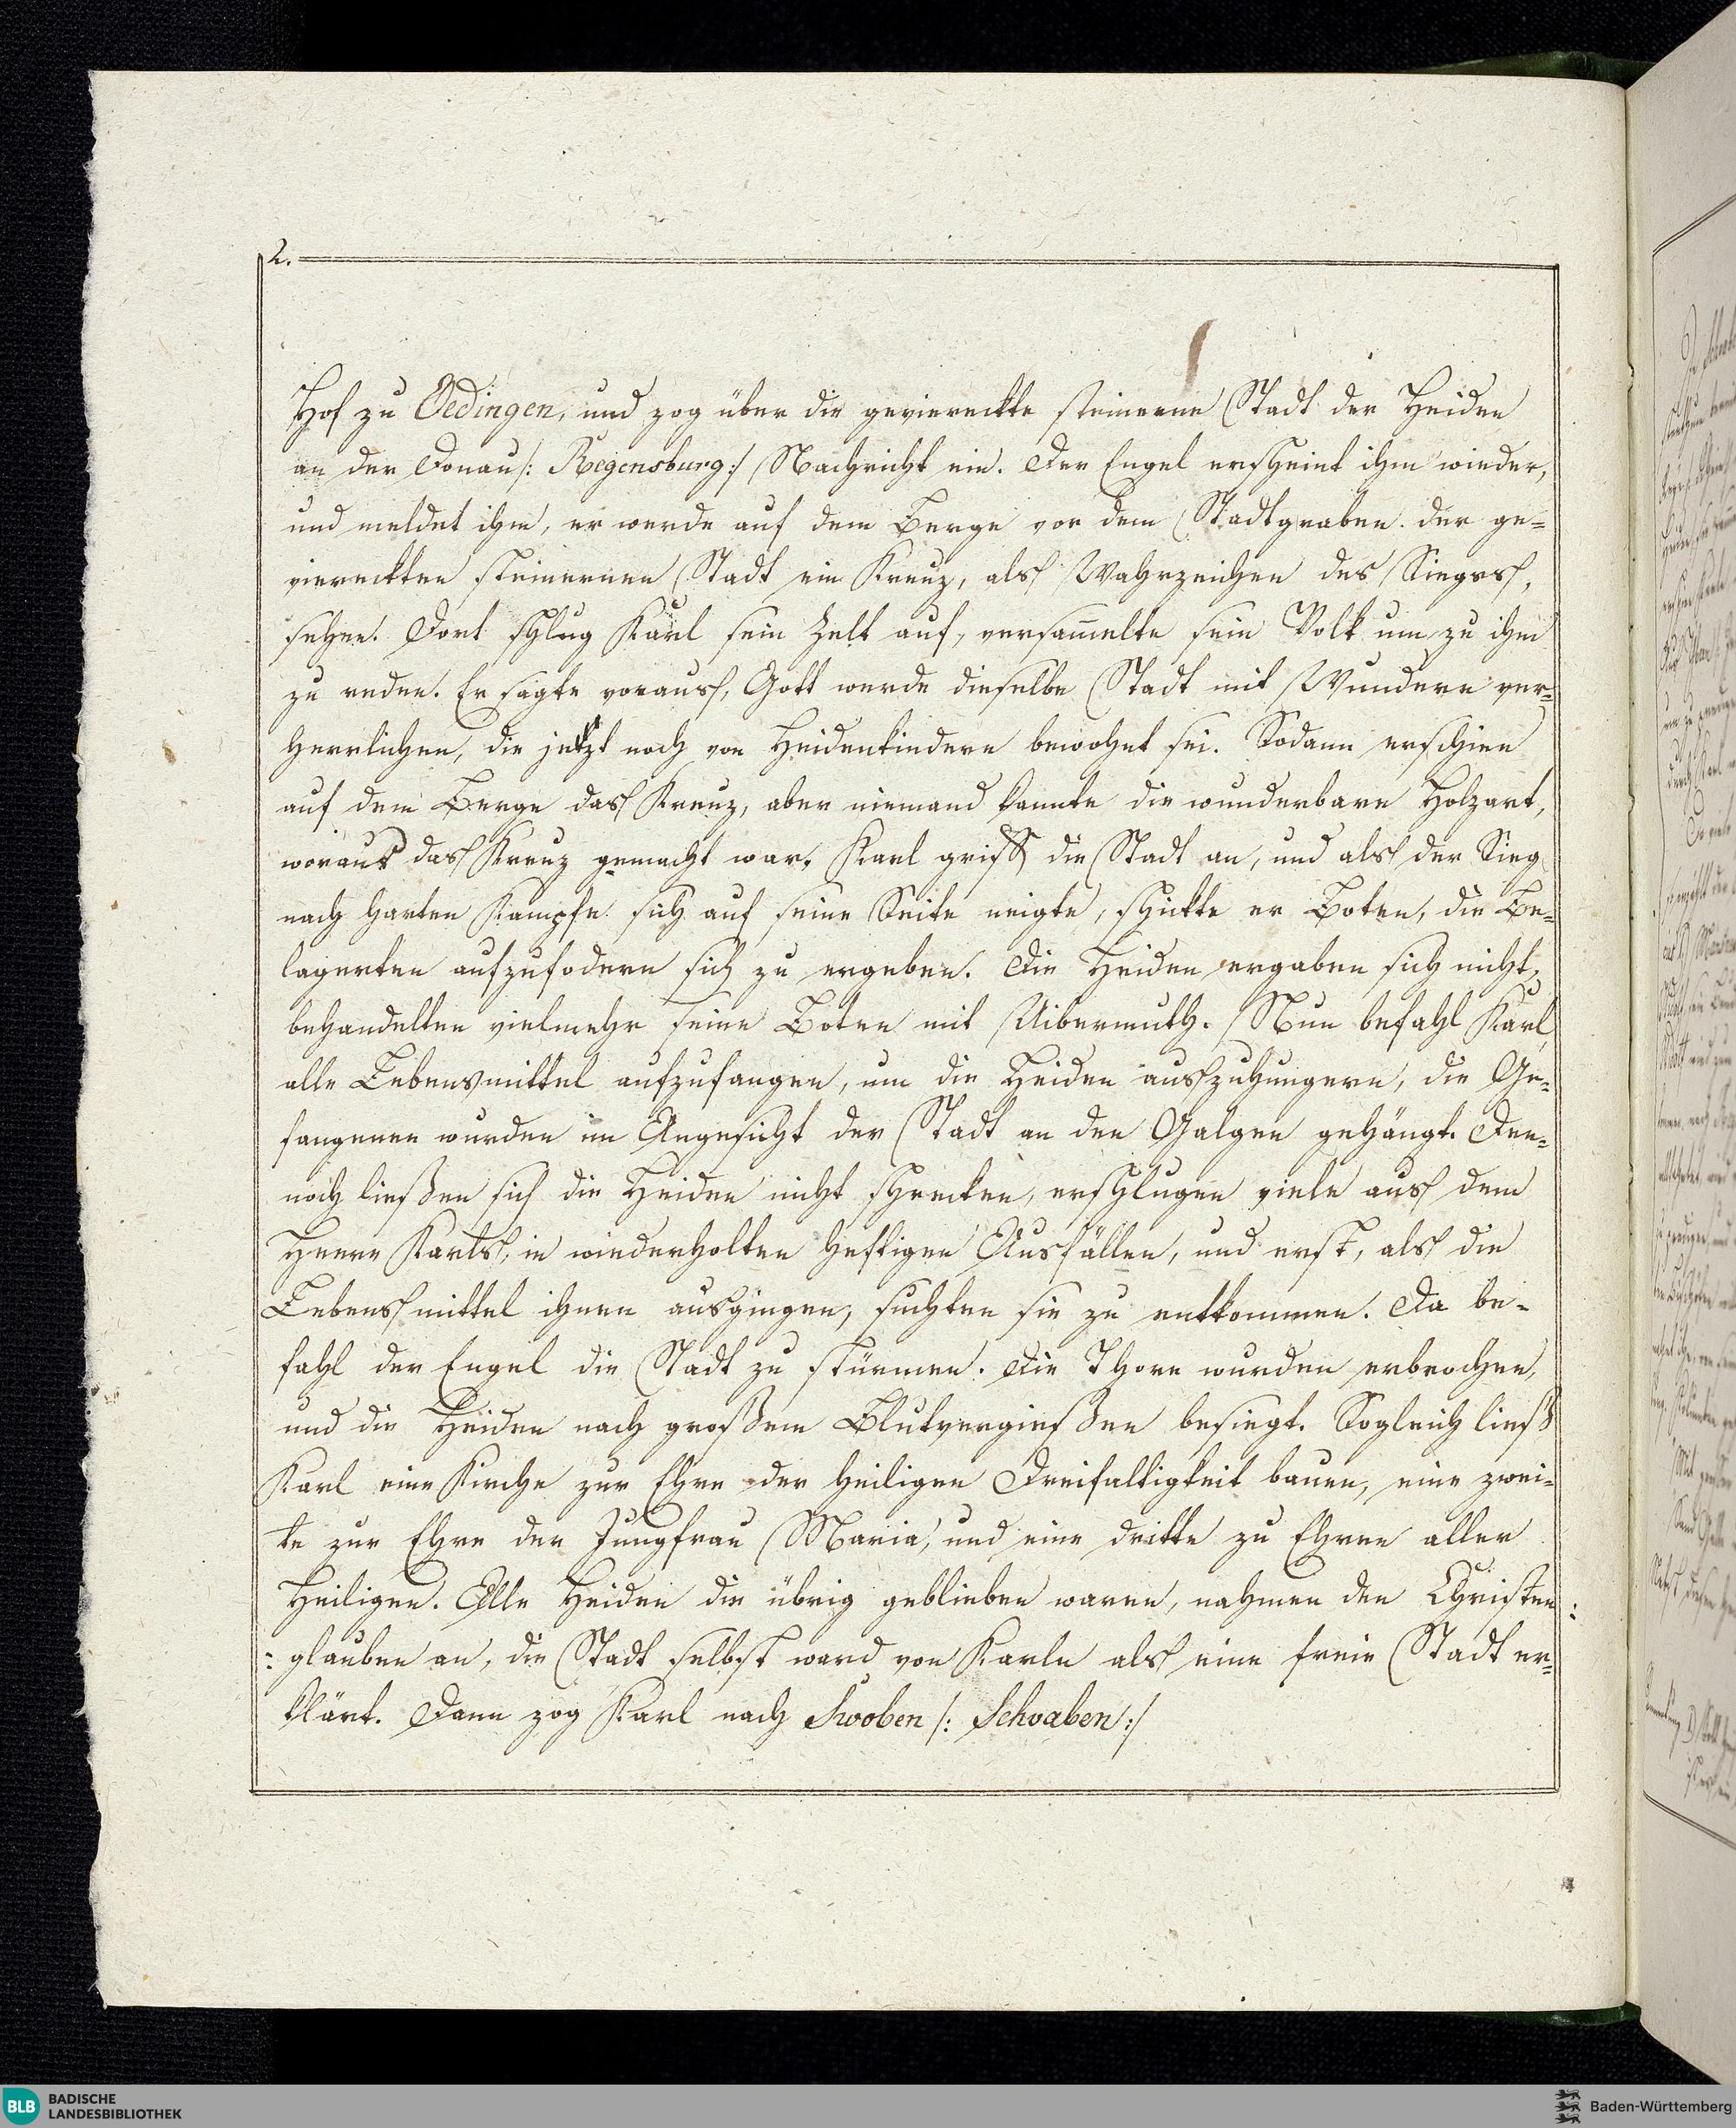 2.
Hof zu Oedingen, und zog über die geviereckte steinerne Stadt der Heiden
an der Donau /: Regensburg :/ Nachricht ein. Der Engel erscheint ihm wieder,
und meldet ihm, er werde auf dem Berge vor dem Stadtgraben der ge-
viereckten steinernen Stadt ein Kreuz, als Wahrzeichen des Sieges,
sehen. Dort schlug Karl sein Zelt auf, versam̄elte sein Volk um zu ihm
zu reden. Er sagte voraus, Gott werde dieselbe Stadt mit Wundern ver-
herrlichen, die jetzt noch von Heidenkindern bewohnt sei. Sodann erschien
auf dem Berge das Kreuz, aber niemand kannte die wunderbare Holzart,
woraus das Kreuz gemacht war. Karl griff die Stadt an, und als der Sieg
nach harten Kampfe sich auf seine Seite neigte, schickte er Boten, die Be-
lagerten aufzufodern sich zu ergeben. Die Heiden ergaben sich nicht,
behandelten vielmehr seine Boten mit Uibermuth. Nun befahl Karl,
alle Lebensmittel aufzufangen, um die Heiden auszuhungern, die Ge-
fangenen wurden im Angesicht der Stadt an den Galgen gehängt. Den-
noch ließen sich die Heiden nicht schrecken, erschlugen viele aus dem
Heere Karls, in wiederholten heftigen Ausfällen, und erst, als die
Lebensmittel ihnen ausgingen, suchten sie zu entkommen. Da be-
fahl der Engel die Stadt zu stürmen. Die Thore wurden erbrochen,
und die Heiden nach großem Blutvergießen besiegt. Sogleich ließ
Karl eine Kirche zur Ehre der heiligen Dreifaltigkeit bauen, eine zwei-
te zur Ehre der Jungfrau Maria, und eine dritte zu Ehren aller
Heiligen. Alle Heiden die übrig geblieben waren, nahmen den Christen :
: glauben an, die Stadt selbst ward von Karln als eine freie Stadt er-
klärt. Dann zog Karl nach Swoben /: Schwaben :/
BLB BADISCHE
LANDESBIBLIOTHEK
Baden-Württemberg